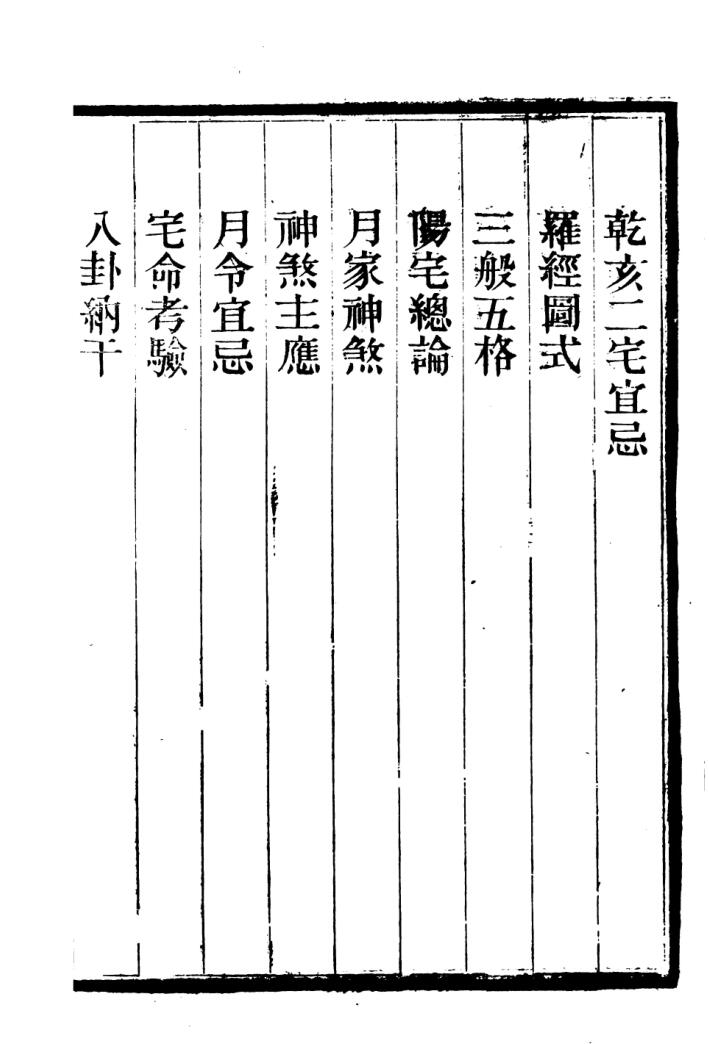 乾亥二宅宜忌
羅經圖式
三般五格
陽宅總論
月家神煞
神煞主應
月令宜忌
宅命考驗
八卦納干